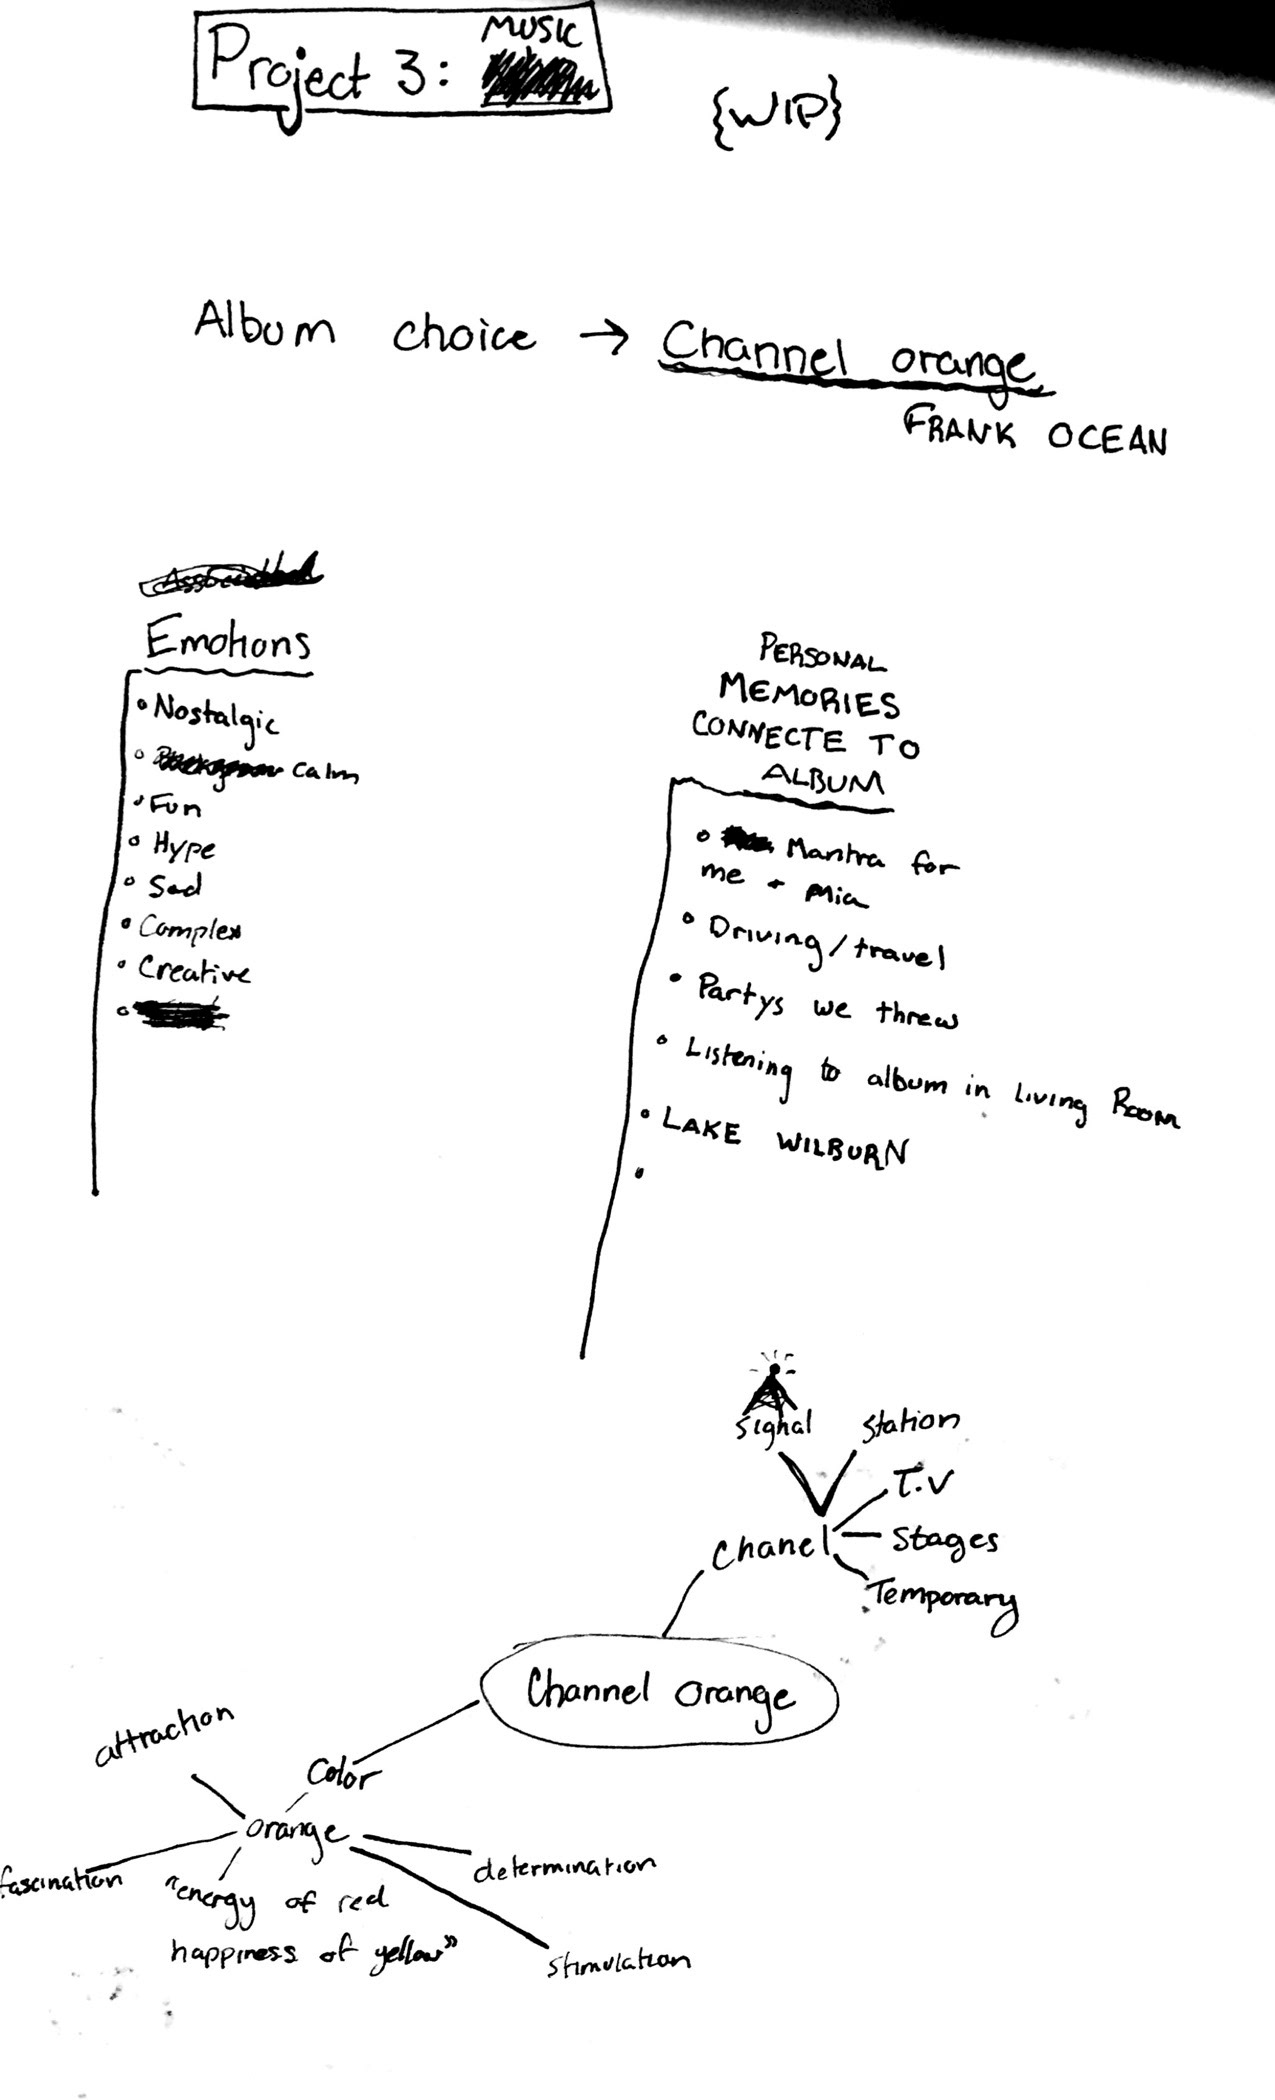 Project 3: MUSIC
{WIP}
Album choice → Channel orange
FRANK OCEAN
Emotions
• Nostalgic
• Calm
• Fun
• Hype
• Sad
• Complex
• Creative
PERSONAL
MEMORIES
CONNECTE TO
ALBUM
• Mantra for
me + Mia
• Driving/travel
• Partys we threw
• Listening to album in Living Room
• LAKE WILBURN
Signal
Station
T.V
Chanel
Stages
Temporary
Channel orange
attraction
Color
orange
fascination
determination
"energy of red
happiness of yellow"
stimulation